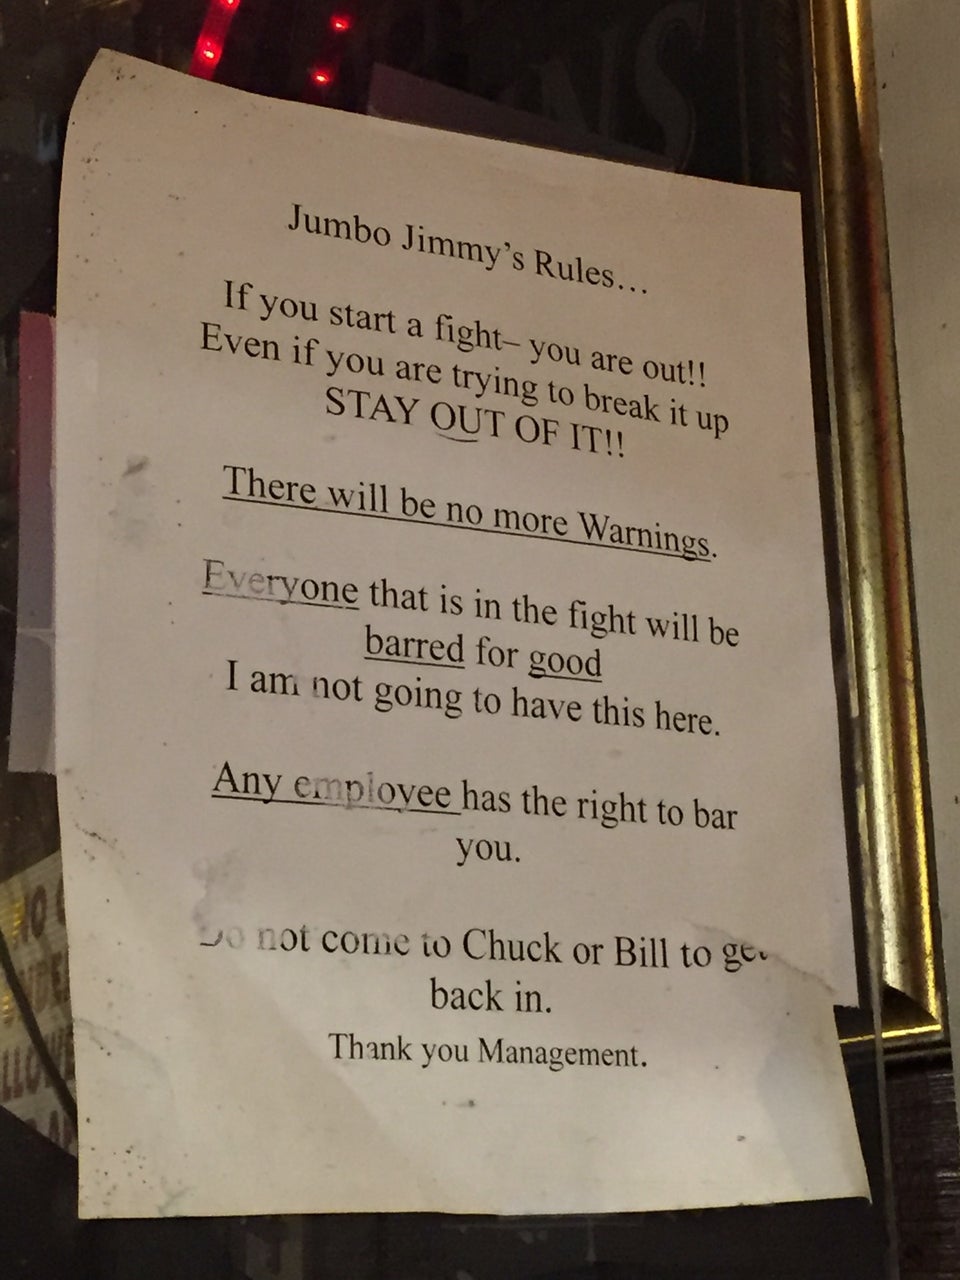 Jumbo Jimmy's Rules...
If you start a fight– you are out!!
Even if you are trying to break it up
STAY OUT OF IT!!
There will be no more Warnings.
Everyone that is in the fight will be
barred for good
I am not going to have this here.
Any employee has the right to bar
you.
Do not come to Chuck or Bill to get
back in.
Thank you Management.